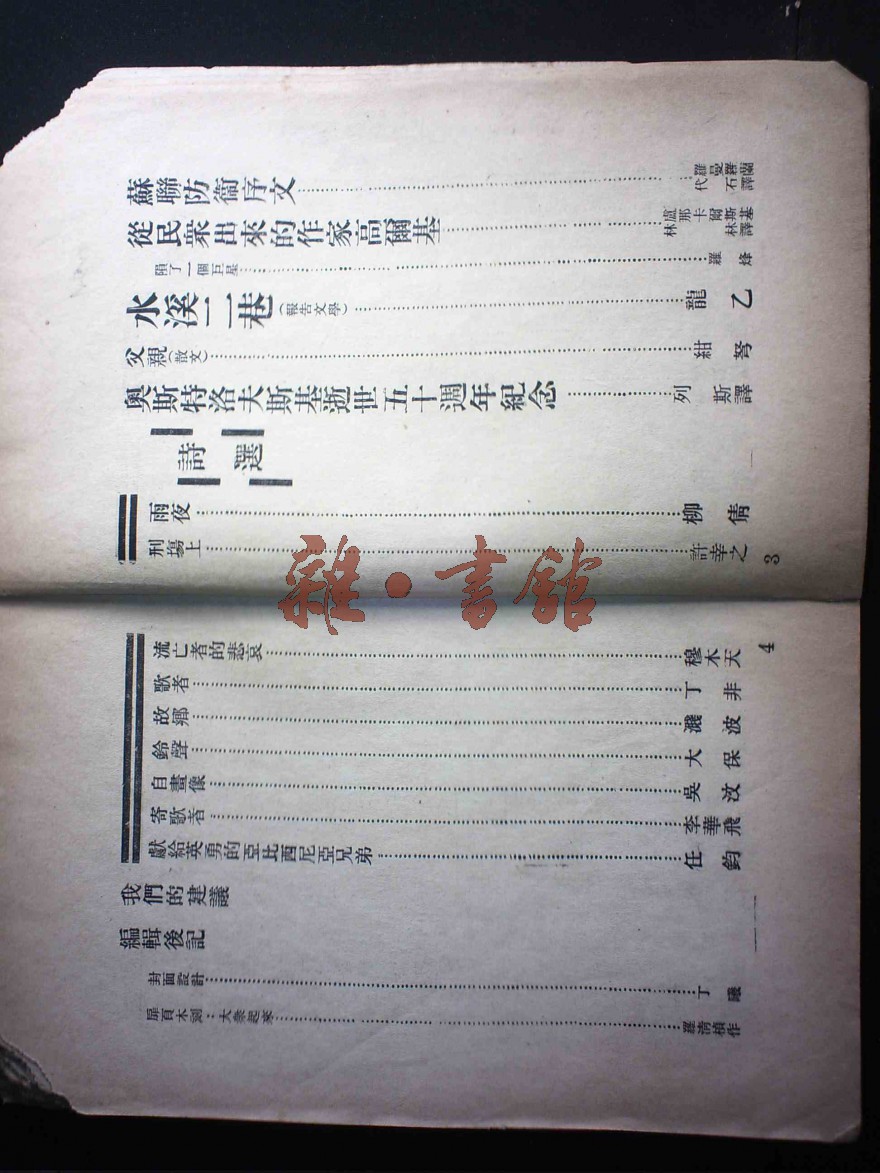 蘇聯防衞序文……羅曼羅蘭 代石譯
從民衆出來的作家高爾基……盧那卡爾斯基 林林譯
隕了一個巨星……羅烽
水溪二巷(報告文學)……龍乙
父親(散文)……紺弩
奧斯特洛夫斯基逝世五十週年紀念……列斯譯
詩選
雨夜……柳倩
刑場上……許幸之
3
流亡者的悲哀……穆木天
歌者……丁非
故鄉……濺波
鈴聲……大保
自畫像……吳汶
寄歌者……李華飛
獻給英勇的亞比西尼亞兄弟……任鈞
4
我們的建議
編輯後記
封面設計……丁曦
扉頁木刻:大衆起來……羅清楨作
雜·書館